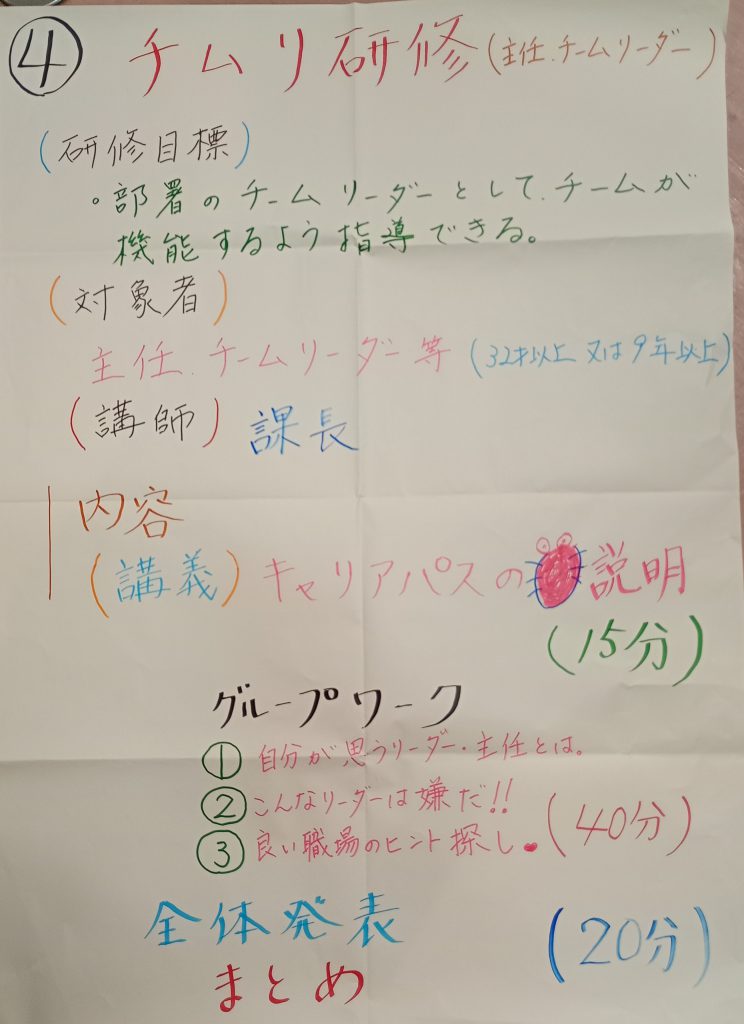 ④ チムリ研修(主任.チームリーダー)
(研修目標)
。部署のチームリーダーとして、チームが
機能するよう指導できる。
(対象者)
主任、チームリーダー等 (32才以上 又は9年以上)
(講師) 課長
内容
(講義) キャリアパスの説明
(15分)
グループワーク
① 自分が思うリーダー・主任とは。
② こんなリーダーは嫌だ!!
(40分)
③ 良い職場のヒント探し
全体発表 (20分)
まとめ